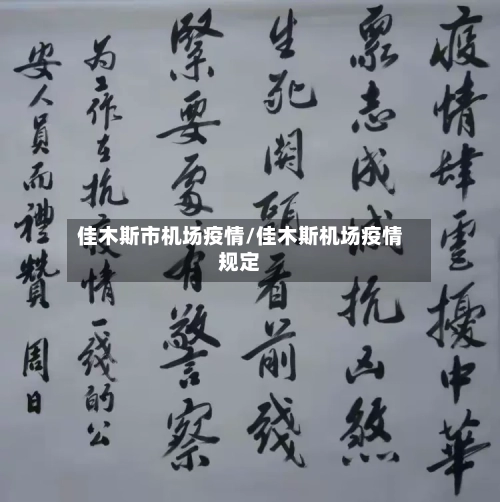 疫情肆虐擾中華
眾志成城抗凶煞
生死關頭看前綫
緊要處有警察
为工作在抗疫情一綫的公
安人員而禮贊 周日
佳木斯市机场疫情/佳木斯机场疫情
规定